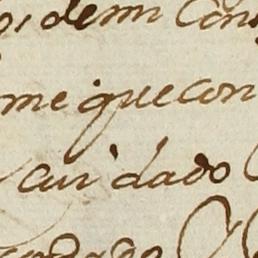 de mi Con
me que con
cuidado